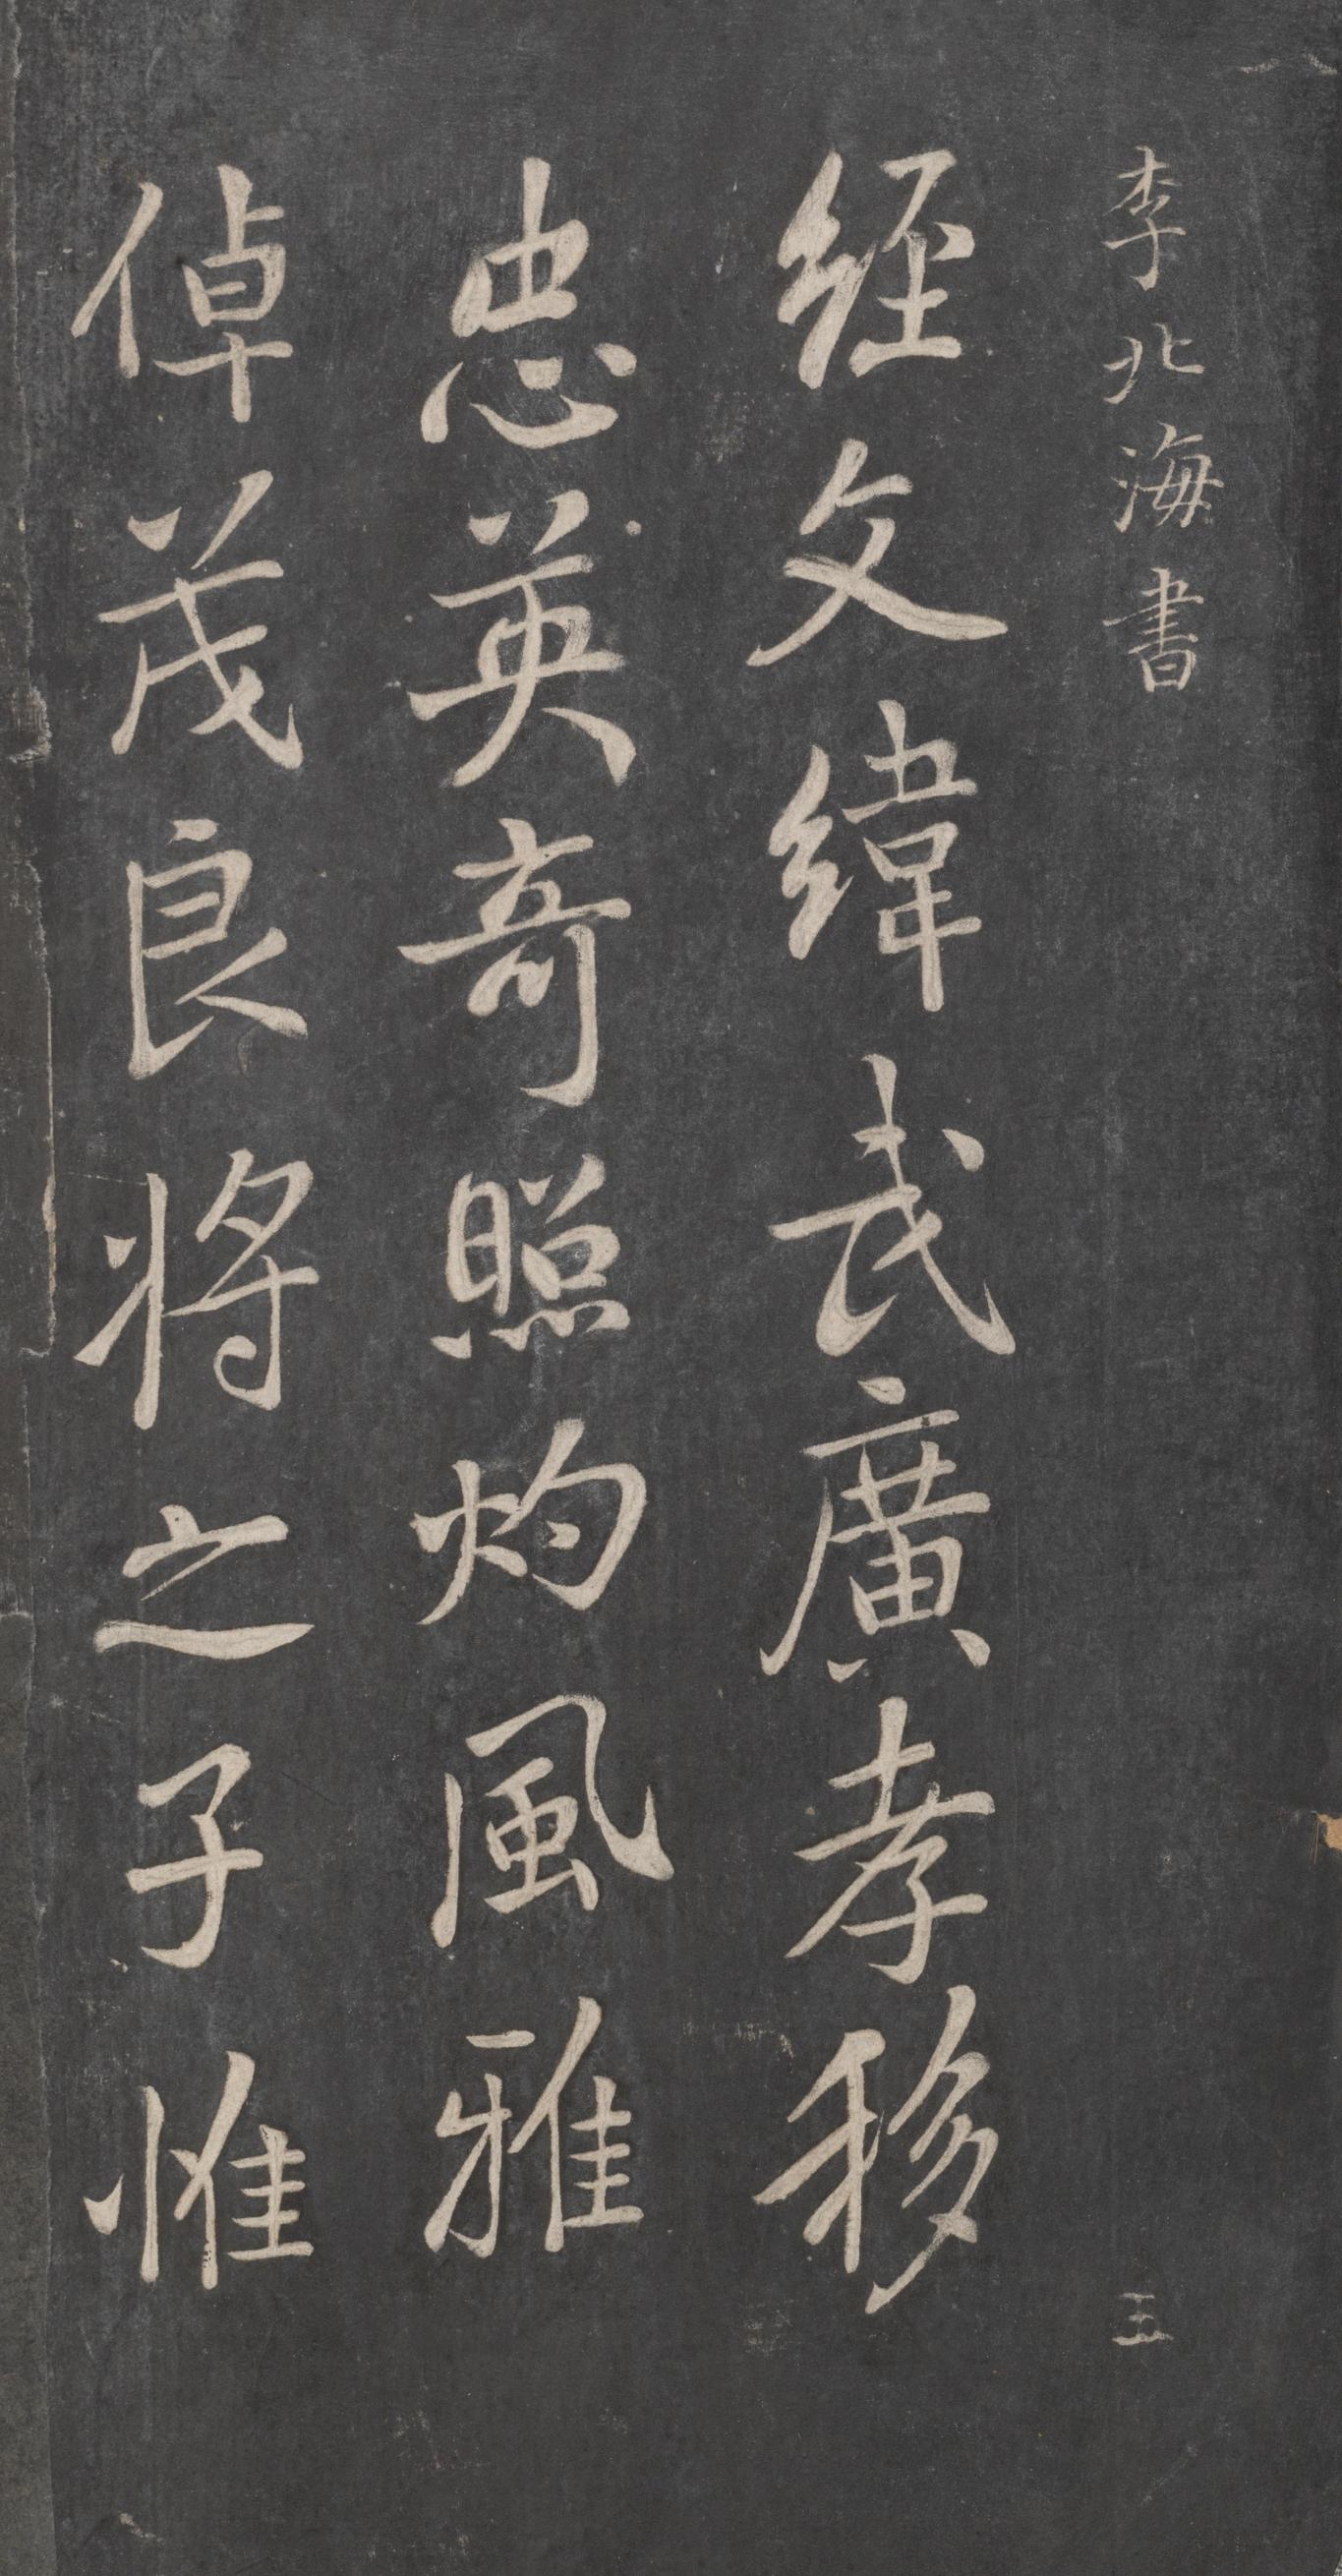 李北海書
五
経文緯武廣孝移
忠英奇照灼風雅
倬茂良將之子惟